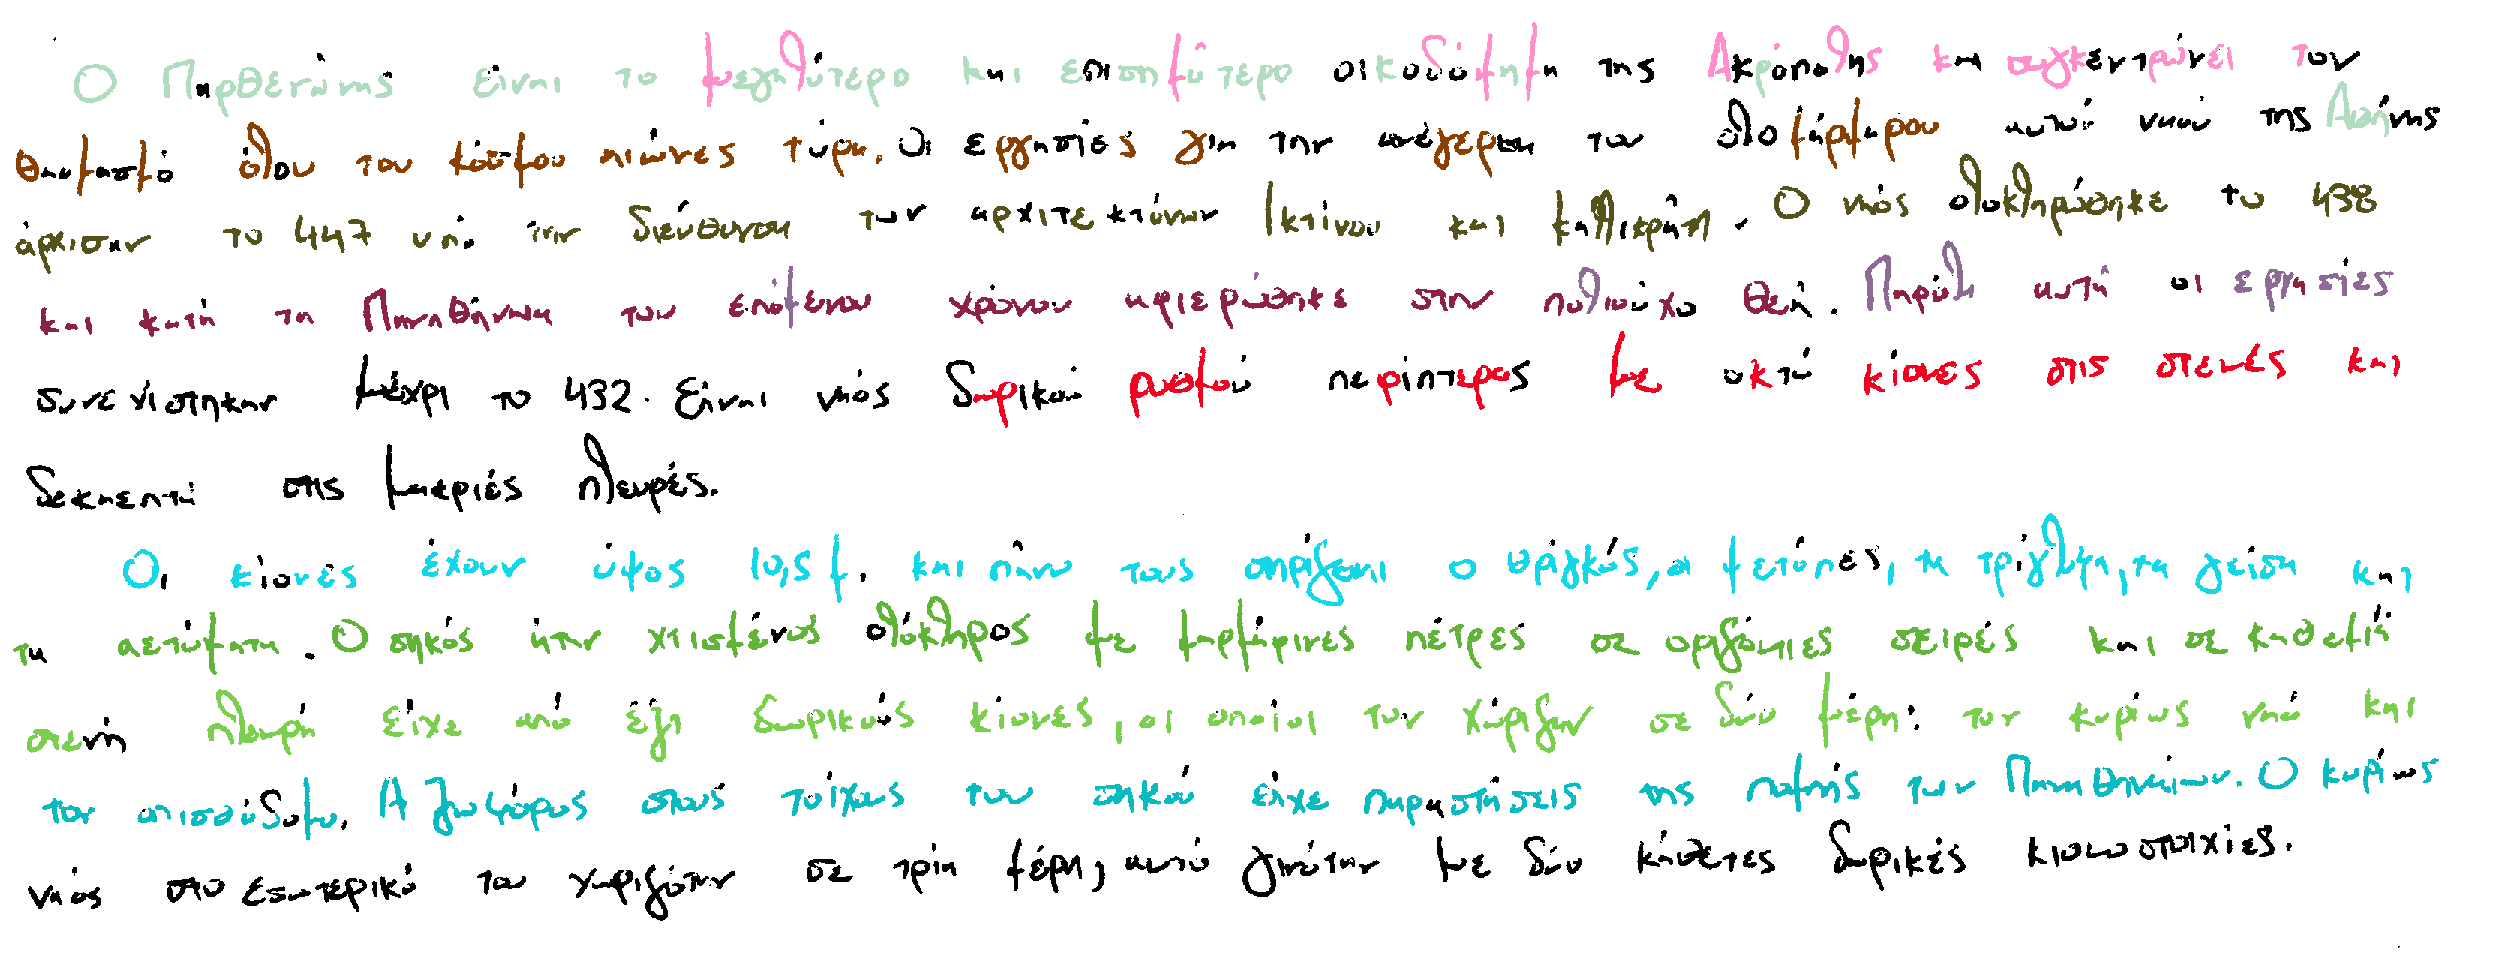 Ο Παρθενώνας είναι το μεγαλύτερο και επισημότερο οικοδόμημα της Ακρόπολης και συγκεντρώνει τον
θαυμασμό όλου του κόσμου αιώνες τώρα. Οι εργασίες για την ανέγερση του ολομάρμαρου αυτού ναού της Αθήνας
άρχισαν το 447 υπό την διεύθυνση των αρχιτεκτόνων Ικτίνου και Καλλικράτη. Ο ναός ολοκληρώθηκε το 438
και κατά τα Παναθήναια του επόμενου χρόνου αφιερώθηκε στην πολιούχο θεά. Παρόλα αυτά οι εργασίες
συνεχίστηκαν μέχρι το 432. Είναι ναός δωρικού ρυθμού περίπτερος με οκτώ κίονες στις στενές και
δεκαεπτά στις μακριές πλευρές.
Οι κίονες έχουν ύψος 10,5 μ. και πάνω τους στηρίζεται ο θριγκός, οι μετόπες, τα τρίγλυφα, τα γείσα και
τα αετώματα. Ο σηκός ήταν χτισμένος ολόκληρος με μαρμάρινες πέτρες σε οριζόντιες σειρές και σε καθεμιά
στενή πλευρή είχε από έξι δωρικούς κίονες, οι οποίοι τον χώριζαν σε δύο μέρη: τον κυρίως ναό και
τον οπισθόδομο. Η ζωοφόρος στους τοίχους του σηκού είχε παραστάσεις της πομπής των Παναθηναίων. Ο κυρίως
ναός στο εσωτερικό του χωριζόταν σε τρία μέρη, αυτό γινόταν με δύο κάθετες δωρικές κιονοστοιχίες.